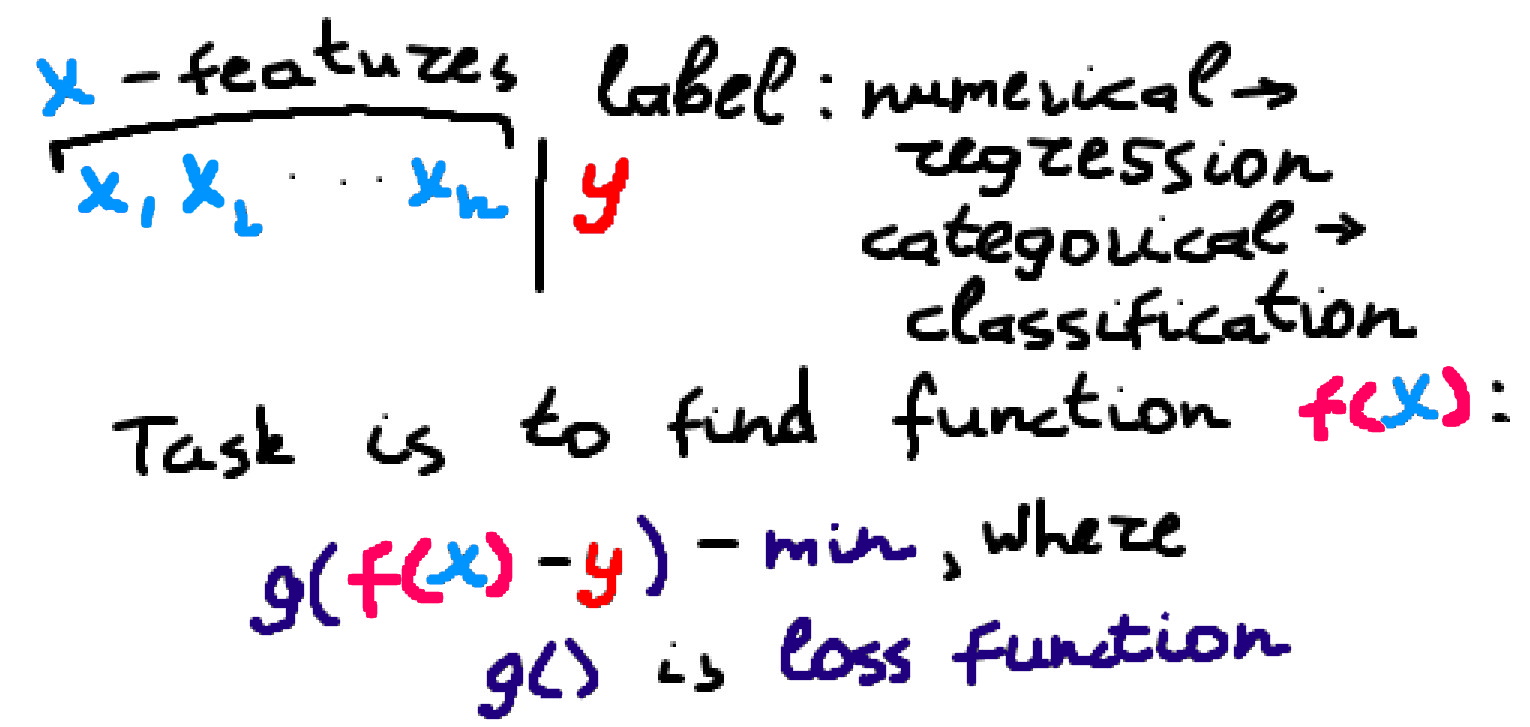 x - features label: numerical →
x₁ x₂ ... xₙ | y regression
categorical →
classification
Task is to find function f(x):
g(f(x) - y) - min, where
g() is loss function